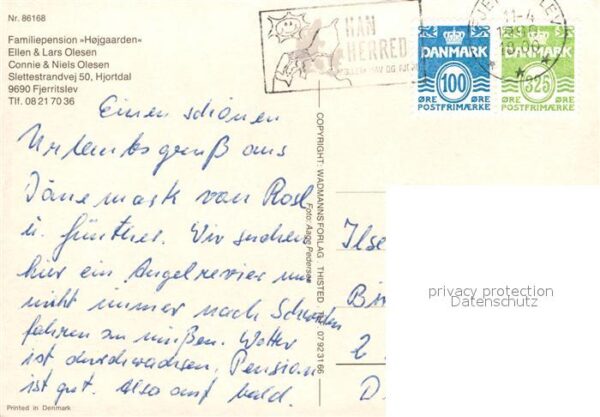 Nr. 86168
Familiepension »Højgaarden«
Ellen & Lars Olesen
Connie & Niels Olesen
Slettestrandvej 50, Hjortdal
9690 Fjerritslev
Tlf. 08 21 70 36
HAN
HERRED
HAV OG FJORD
DANMARK
100
ØRE ØRE
POSTFRIMÆRKE
DANMARK
325
ØRE ØRE
POSTFRIMÆRKE
Einen schönen
Urlaubsgruß aus
Dänemark von Rosl
u. Günther. Wir suchen
hier ein Angelrevier um
nicht immer nach Schweden
fahren zu müßen. Wetter
ist durchwachsen, Pension
ist gut. Also auf bald.
COPYRIGHT: WADMANNS FORLAG · THISTED · TLF. 07 92 31 66
Foto: Aage Pedersen
Ilse
2
D
privacy protection
Datenschutz
Printed in Denmark